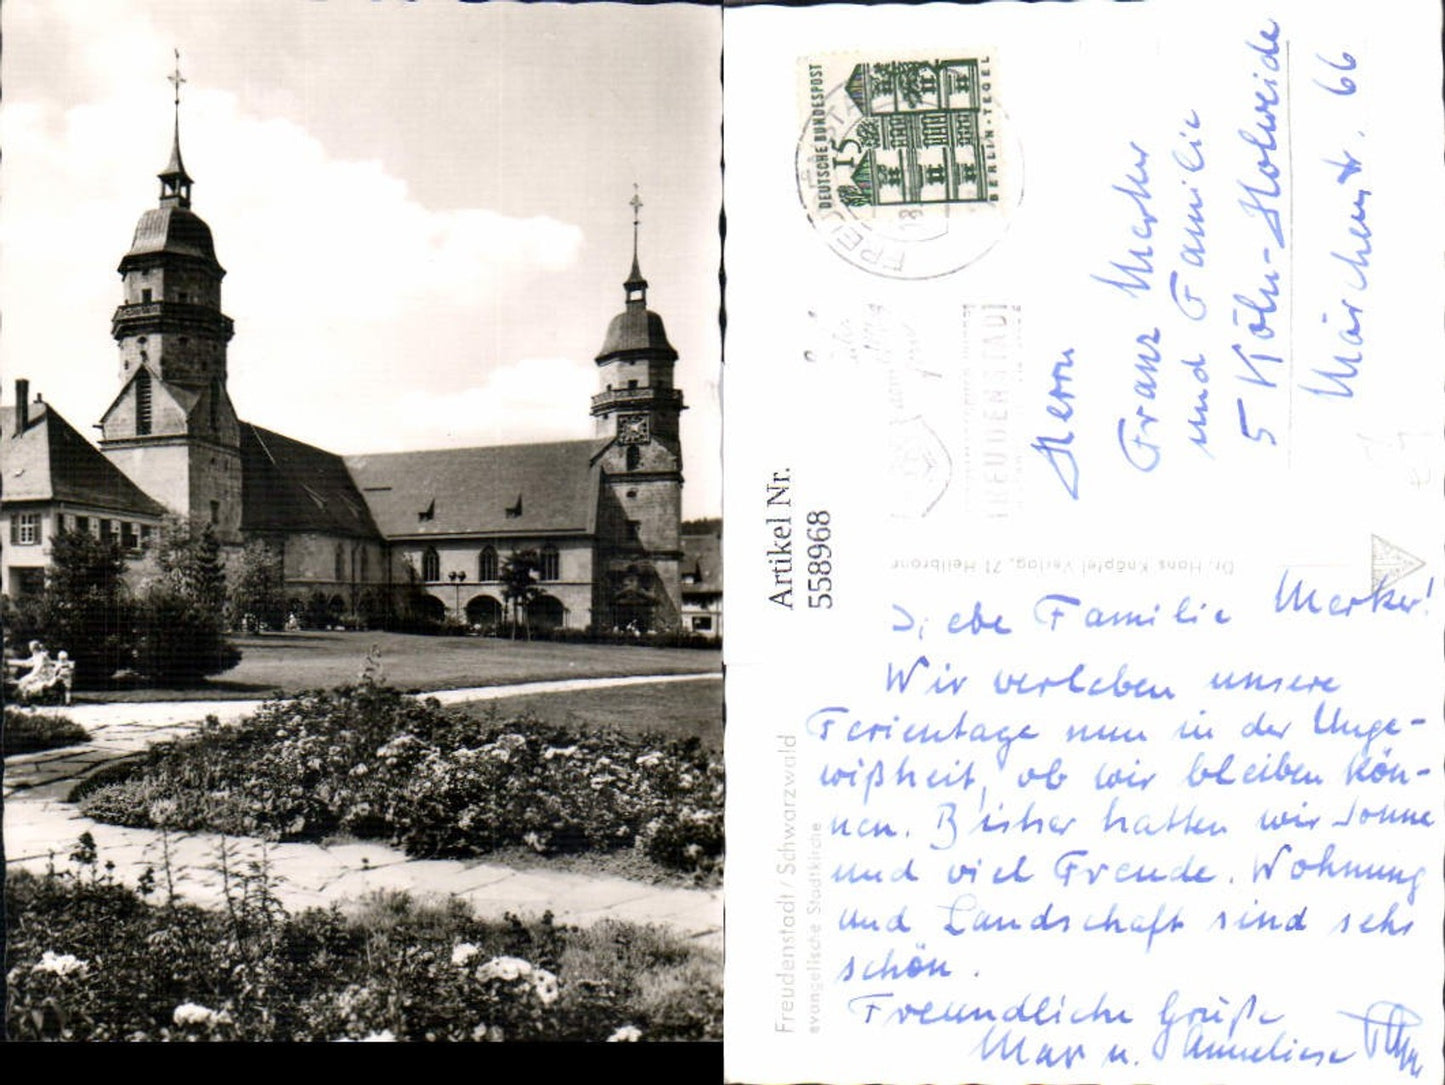 DEUTSCHE BUNDESPOST
15
BERLIN-TEGEL
FREUDENSTADT
Herrn
Franz Merker
und Familie
5 Köln-Holweide
Märchenstr. 66
Artikel Nr.
558968
Dr. Hans Knöpfel Verlag, 71 Heilbronn
Freudenstadt / Schwarzwald
evangelische Stadtkirche
Liebe Familie Merker!
Wir verleben unsere
Ferientage nun in der Unge-
wißheit, ob wir bleiben kön-
nen. Bisher hatten wir Sonne
und viel Freude. Wohnung
und Landschaft sind sehr
schön.
Freundliche Grüße
Max u. Anneliese